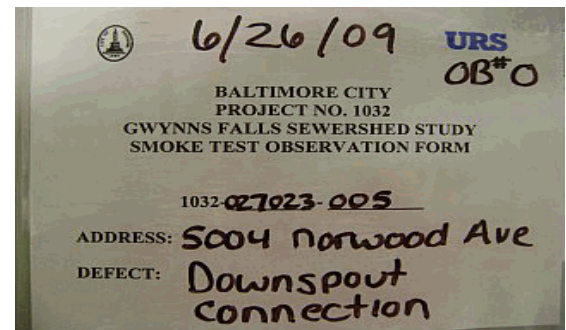 6/26/09
URS
OB#0
BALTIMORE CITY
PROJECT NO. 1032
GWYNNS FALLS SEWERSHED STUDY
SMOKE TEST OBSERVATION FORM
1032-027023-005
ADDRESS: 5004 Norwood Ave
DEFECT: Downspout
Connection